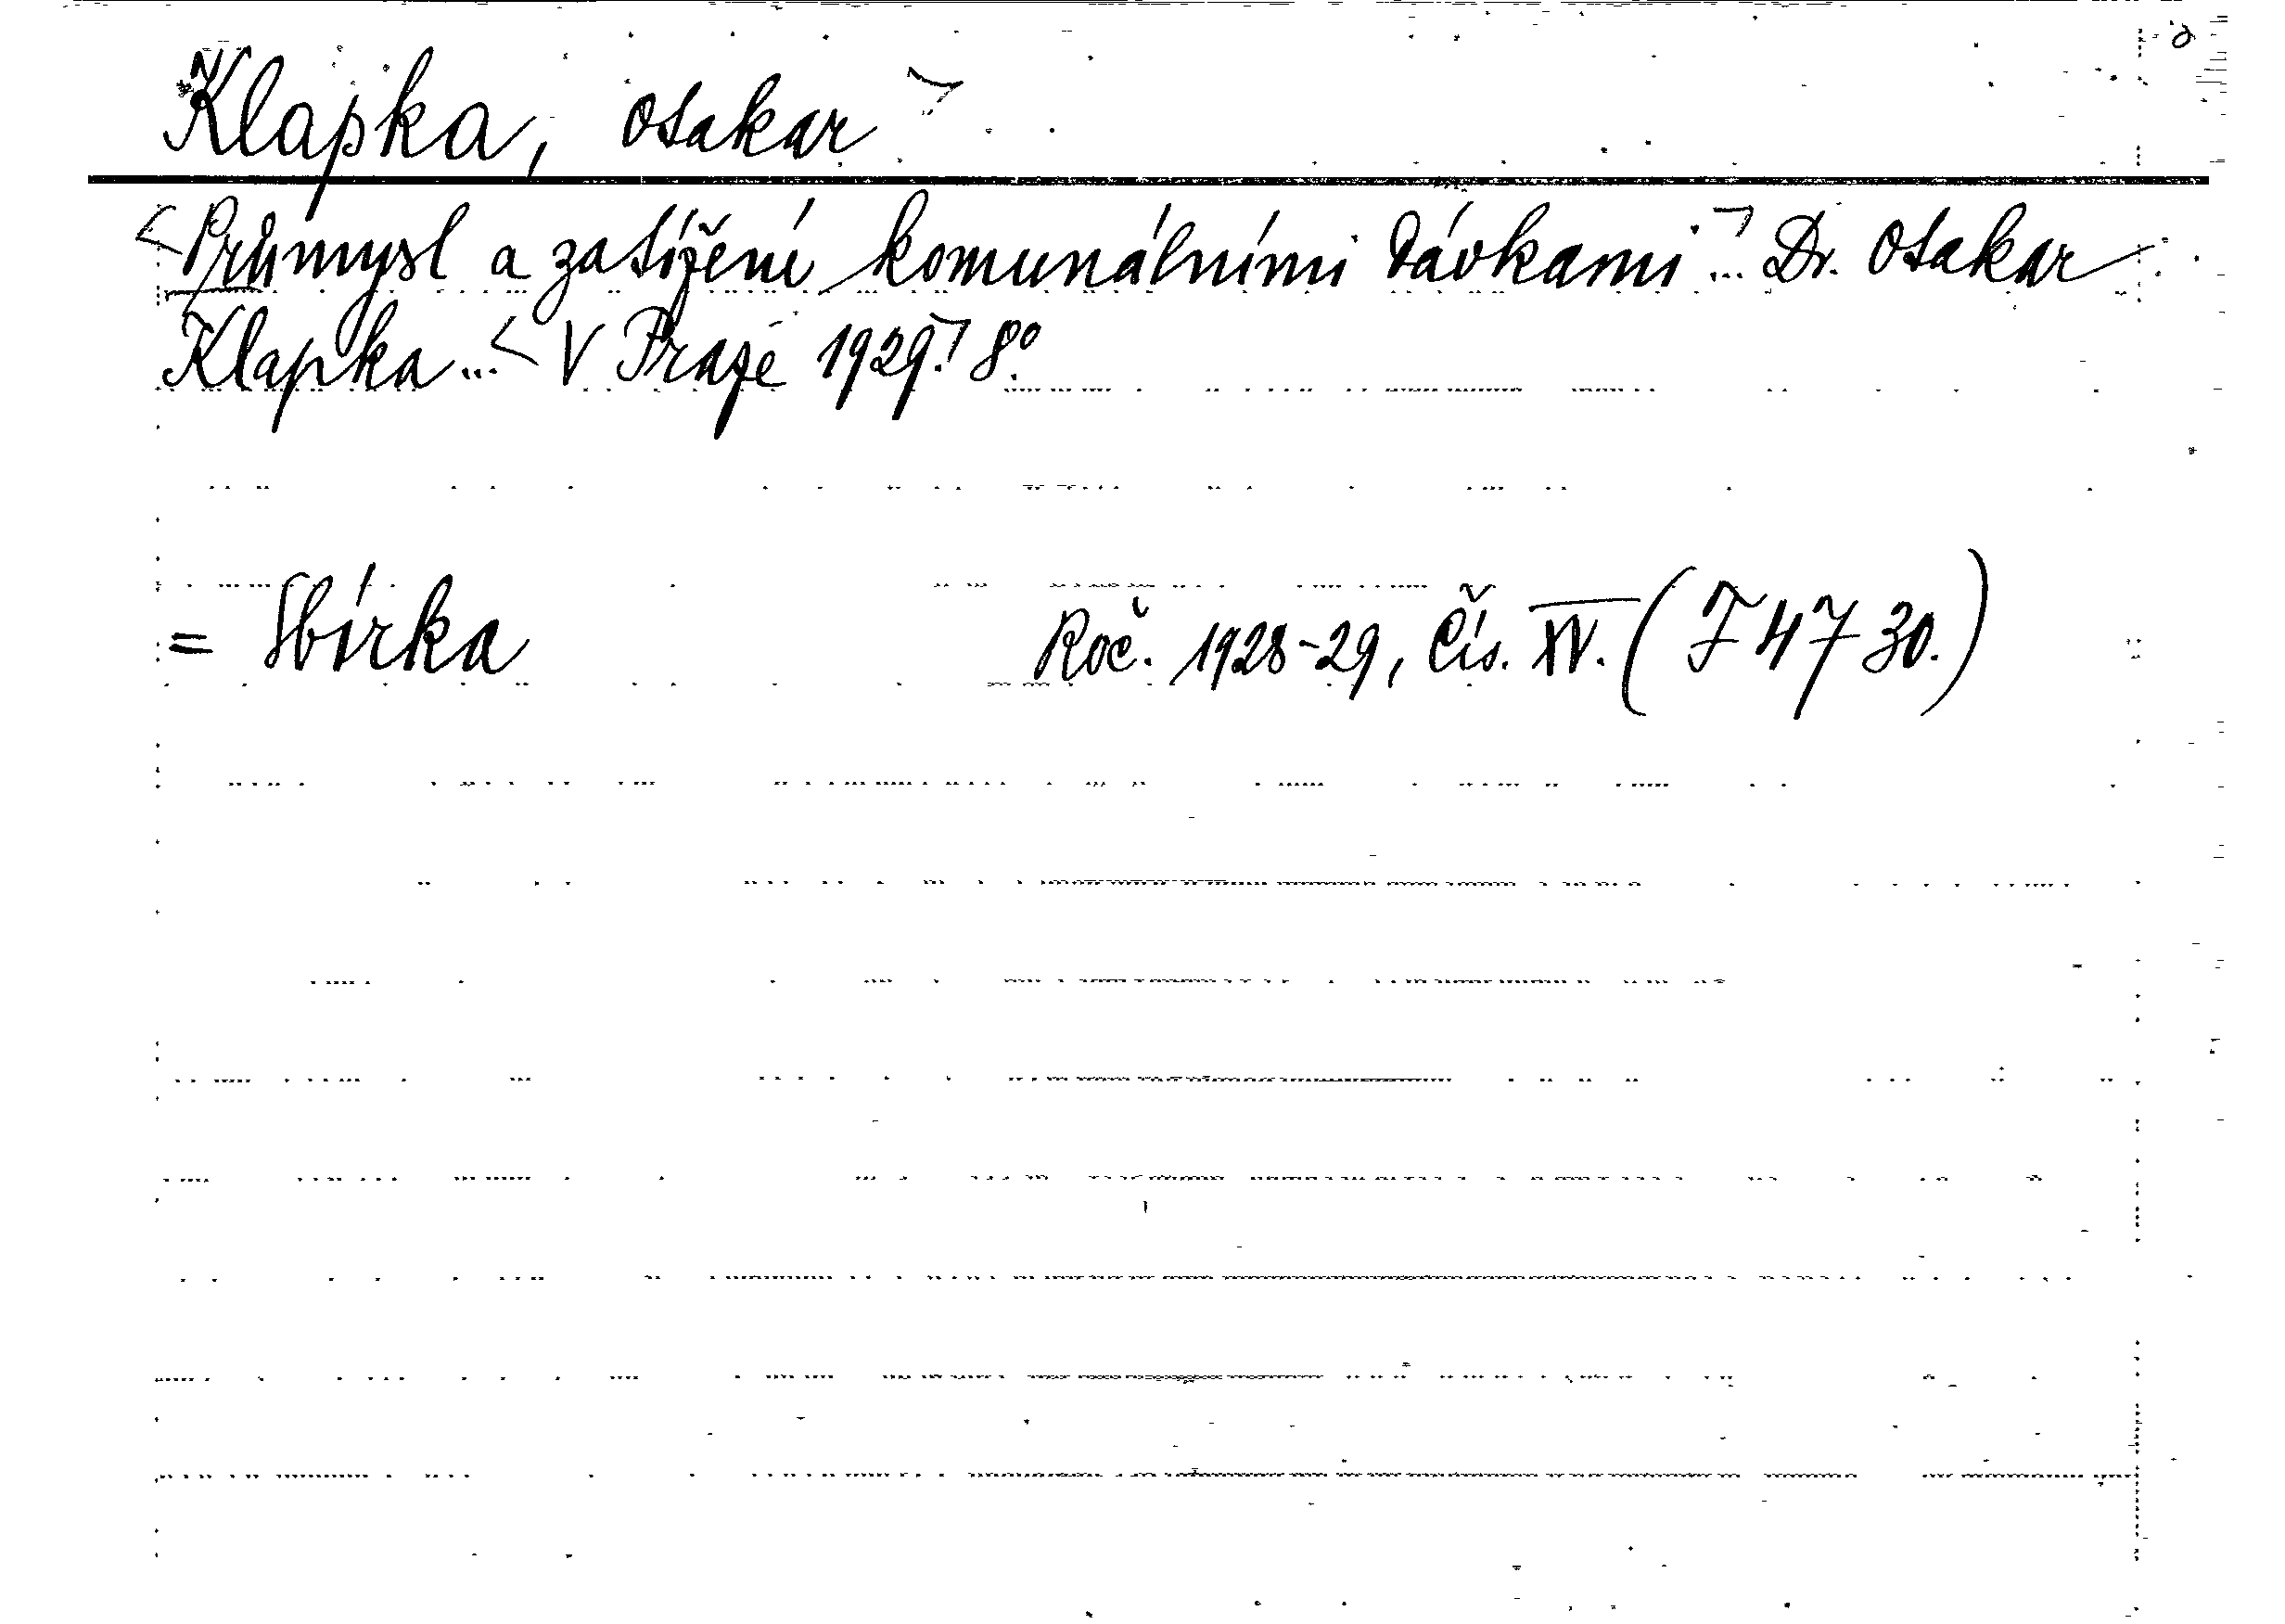 Klapka, Otakar
<Průmysl a zatížení komunálními dávkami...> Dr. Otakar
Klapka...<V Praze 1929.> 8°.
= Sbírka Roč. 1928-29, Čís. XV. (J 4730.)